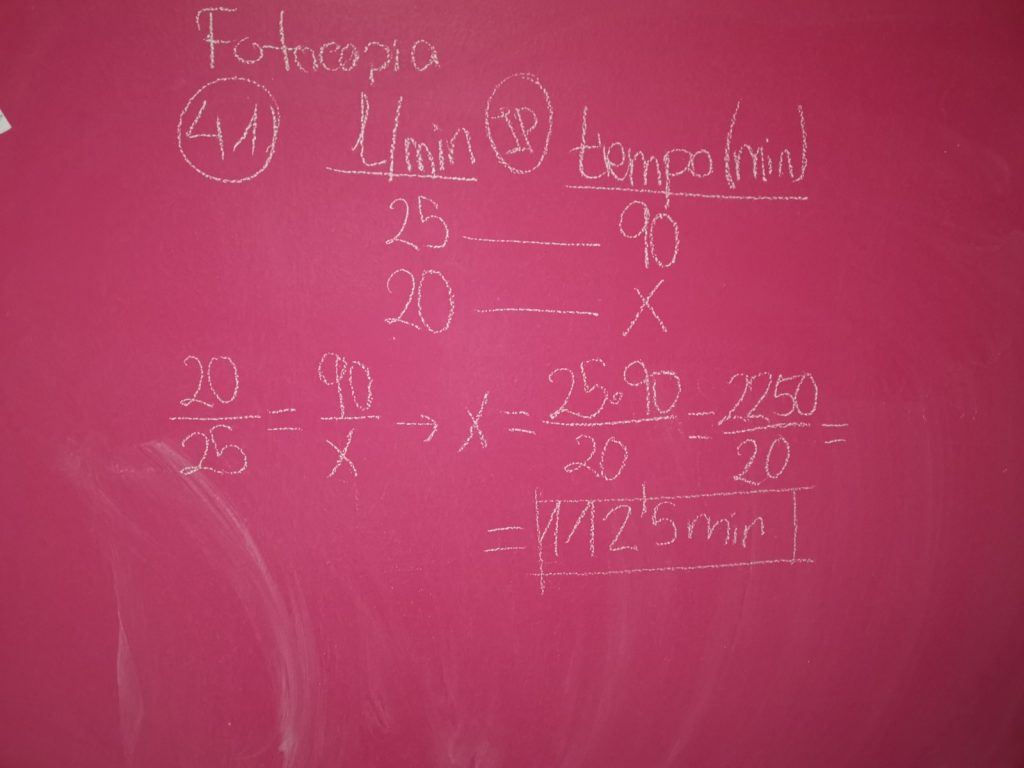 Fotocopia
41 L/min IP tiempo (min)
25 — 90
20 — X
20/25 = 90/X → X = 25·90/20 = 2250/20 =
= 112'5 min